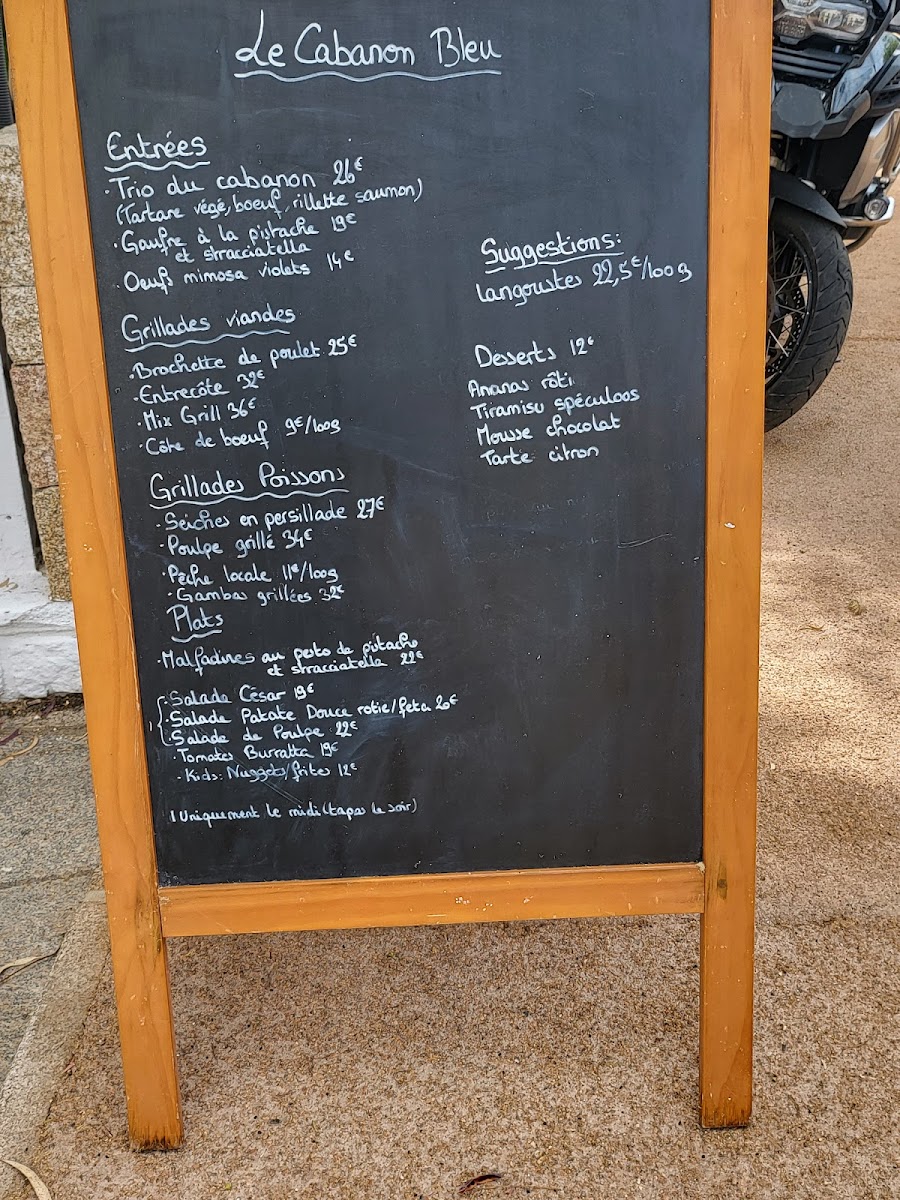 Le Cabanon Bleu
Entrées
· Trio du cabanon 26€
(Tartare végé, boeuf, rillette saumon)
· Gaufre à la pistache 19€
et stracciatella
· Oeufs mimosa violets 14€
Grillades viandes
· Brochette de poulet 25€
· Entrecôte 32€
· Mix Grill 36€
· Côte de boeuf 9€/100g
Grillades Poissons
· Seiches en persillade 27€
· Poulpe grillé 34€
· Pêche locale 11€/100g
· Gambas grillées 32€
Plats
· Malfadines au pesto de pistache
et stracciatella 22€
· Salade César 19€
· Salade Patate Douce rotie/feta 20€
· Salade de Poulpe 22€
· Tomates Burratta 19€
· Kids: Nuggets/frites 12€
! Uniquement le midi (tapas le soir)
Suggestions:
Langoustes 22,5€/100g
Desserts 12€
Ananas rôti
Tiramisu spéculoos
Mousse chocolat
Tarte citron